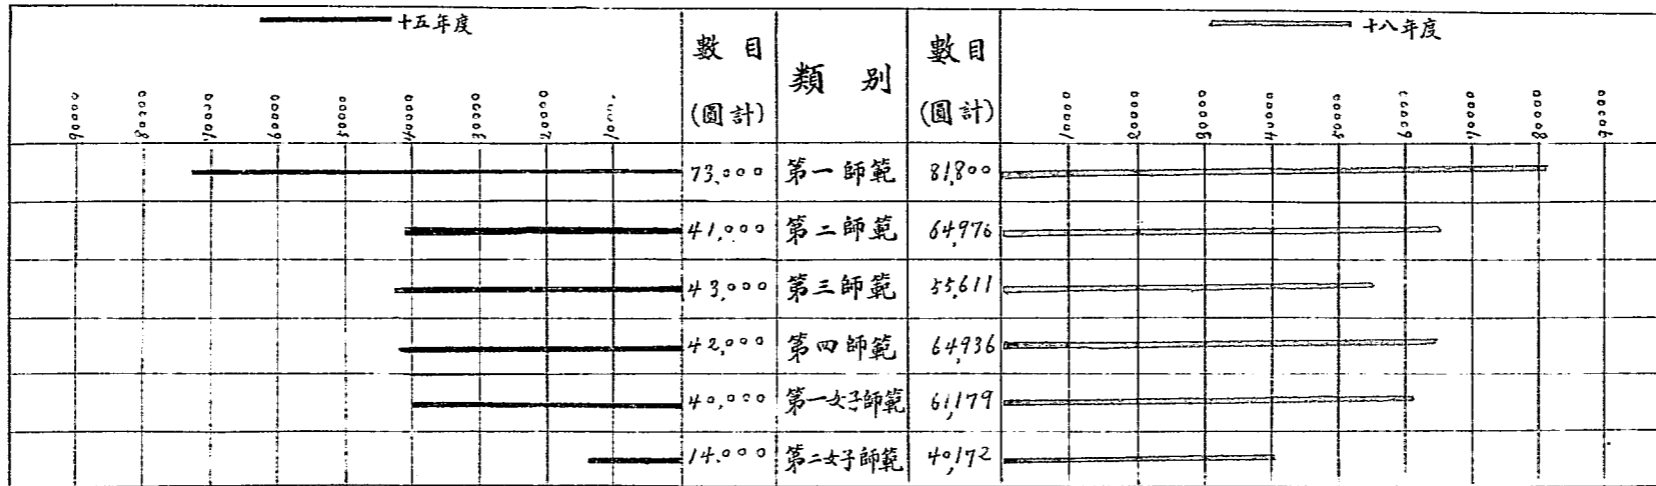 十五年度
十八年度
數目 類別 數目
(圓計) (圓計)
90000 80000 70000 60000 50000 40000 30000 20000
10000 20000 30000 40000 50000 60000 70000 80000 90000
73,000 第一師範 81,800
41,000 第二師範 64,976
43,000 第三師範 55,611
42,000 第四師範 64,936
40,000 第一女子師範 61,179
14,000 第二女子師範 40,172